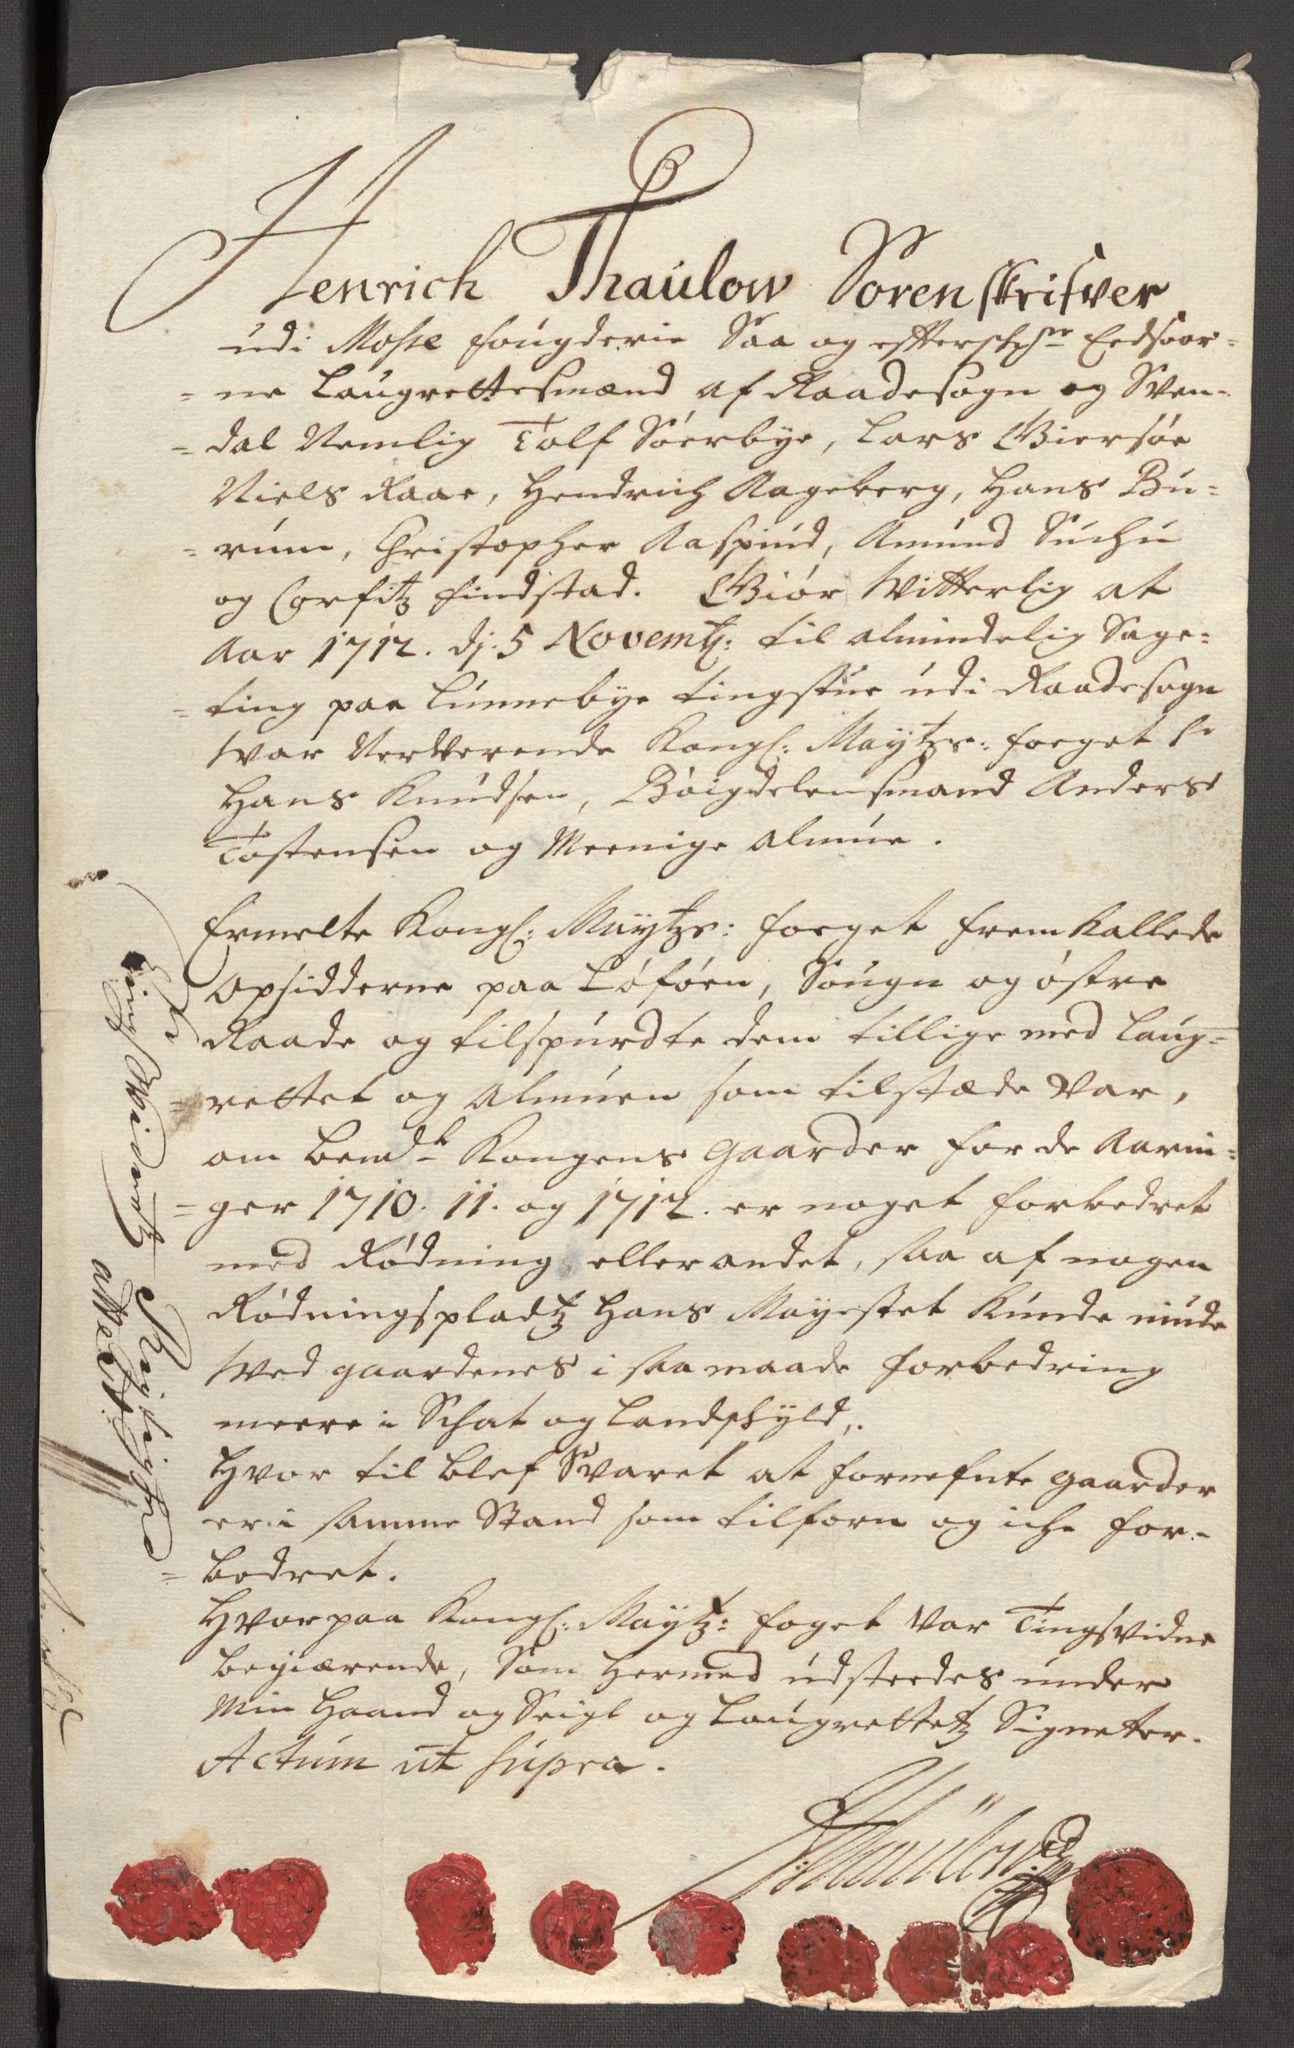 Henrich Thaulow Sorenskrifver
udi Mosse fougderie Saa og effterschr: Eedsoor-
= ne Laugrettesmænd af Raadesogn og Sven-
= dal Nemlig Tolf Sóerbye, Lars Giersóe
Niels Raae, Hendrich Aageberg, Hans Bu-
= rum, Christopher Raspiud, Amund Suchu
og Corfitz Findstad. Giór Witterlig at
Aar 1712. dj. 5 Novemb: til almindelig Sage-
= ting paa Lunnebye tingstue udi Raadesogn
War Nerværende Kongl: Maytzs: foeget Sr
Hans Knudsen, Bóigdelensmand Anders
Tostensen og Meenige Almue.
Ermelte Kongl: Maytzs: foeget fremkallede
Opsidderne paa Lófóen, Sougn og óstre
Raade og tilspurdte dem tillige med Laug-
= rettet og Almuen som tilstæde var,
om bemdte Kongens Gaarder for de Aarin-
= ger 1710. 11. og 1712. er noget forbedret
med Rødning eller andet, saa af nogen
Rødningspladtz Hans Mayestet Kunde niude
Wed gaardenes i saa maade forbedring
meere i Schat og Landschyld.
Hvor til blef Svaret at fornefnte gaarder
er i samme Stand som tilforn og iche for-
= bedret.
Hvorpaa Kongl: Maytz: foget var Tingsvidne
begiærende, Som hermed udsteedes under
Min Haand og Seigl og Laugrettetz Signeter.
Actum ut supra.
HThaulow